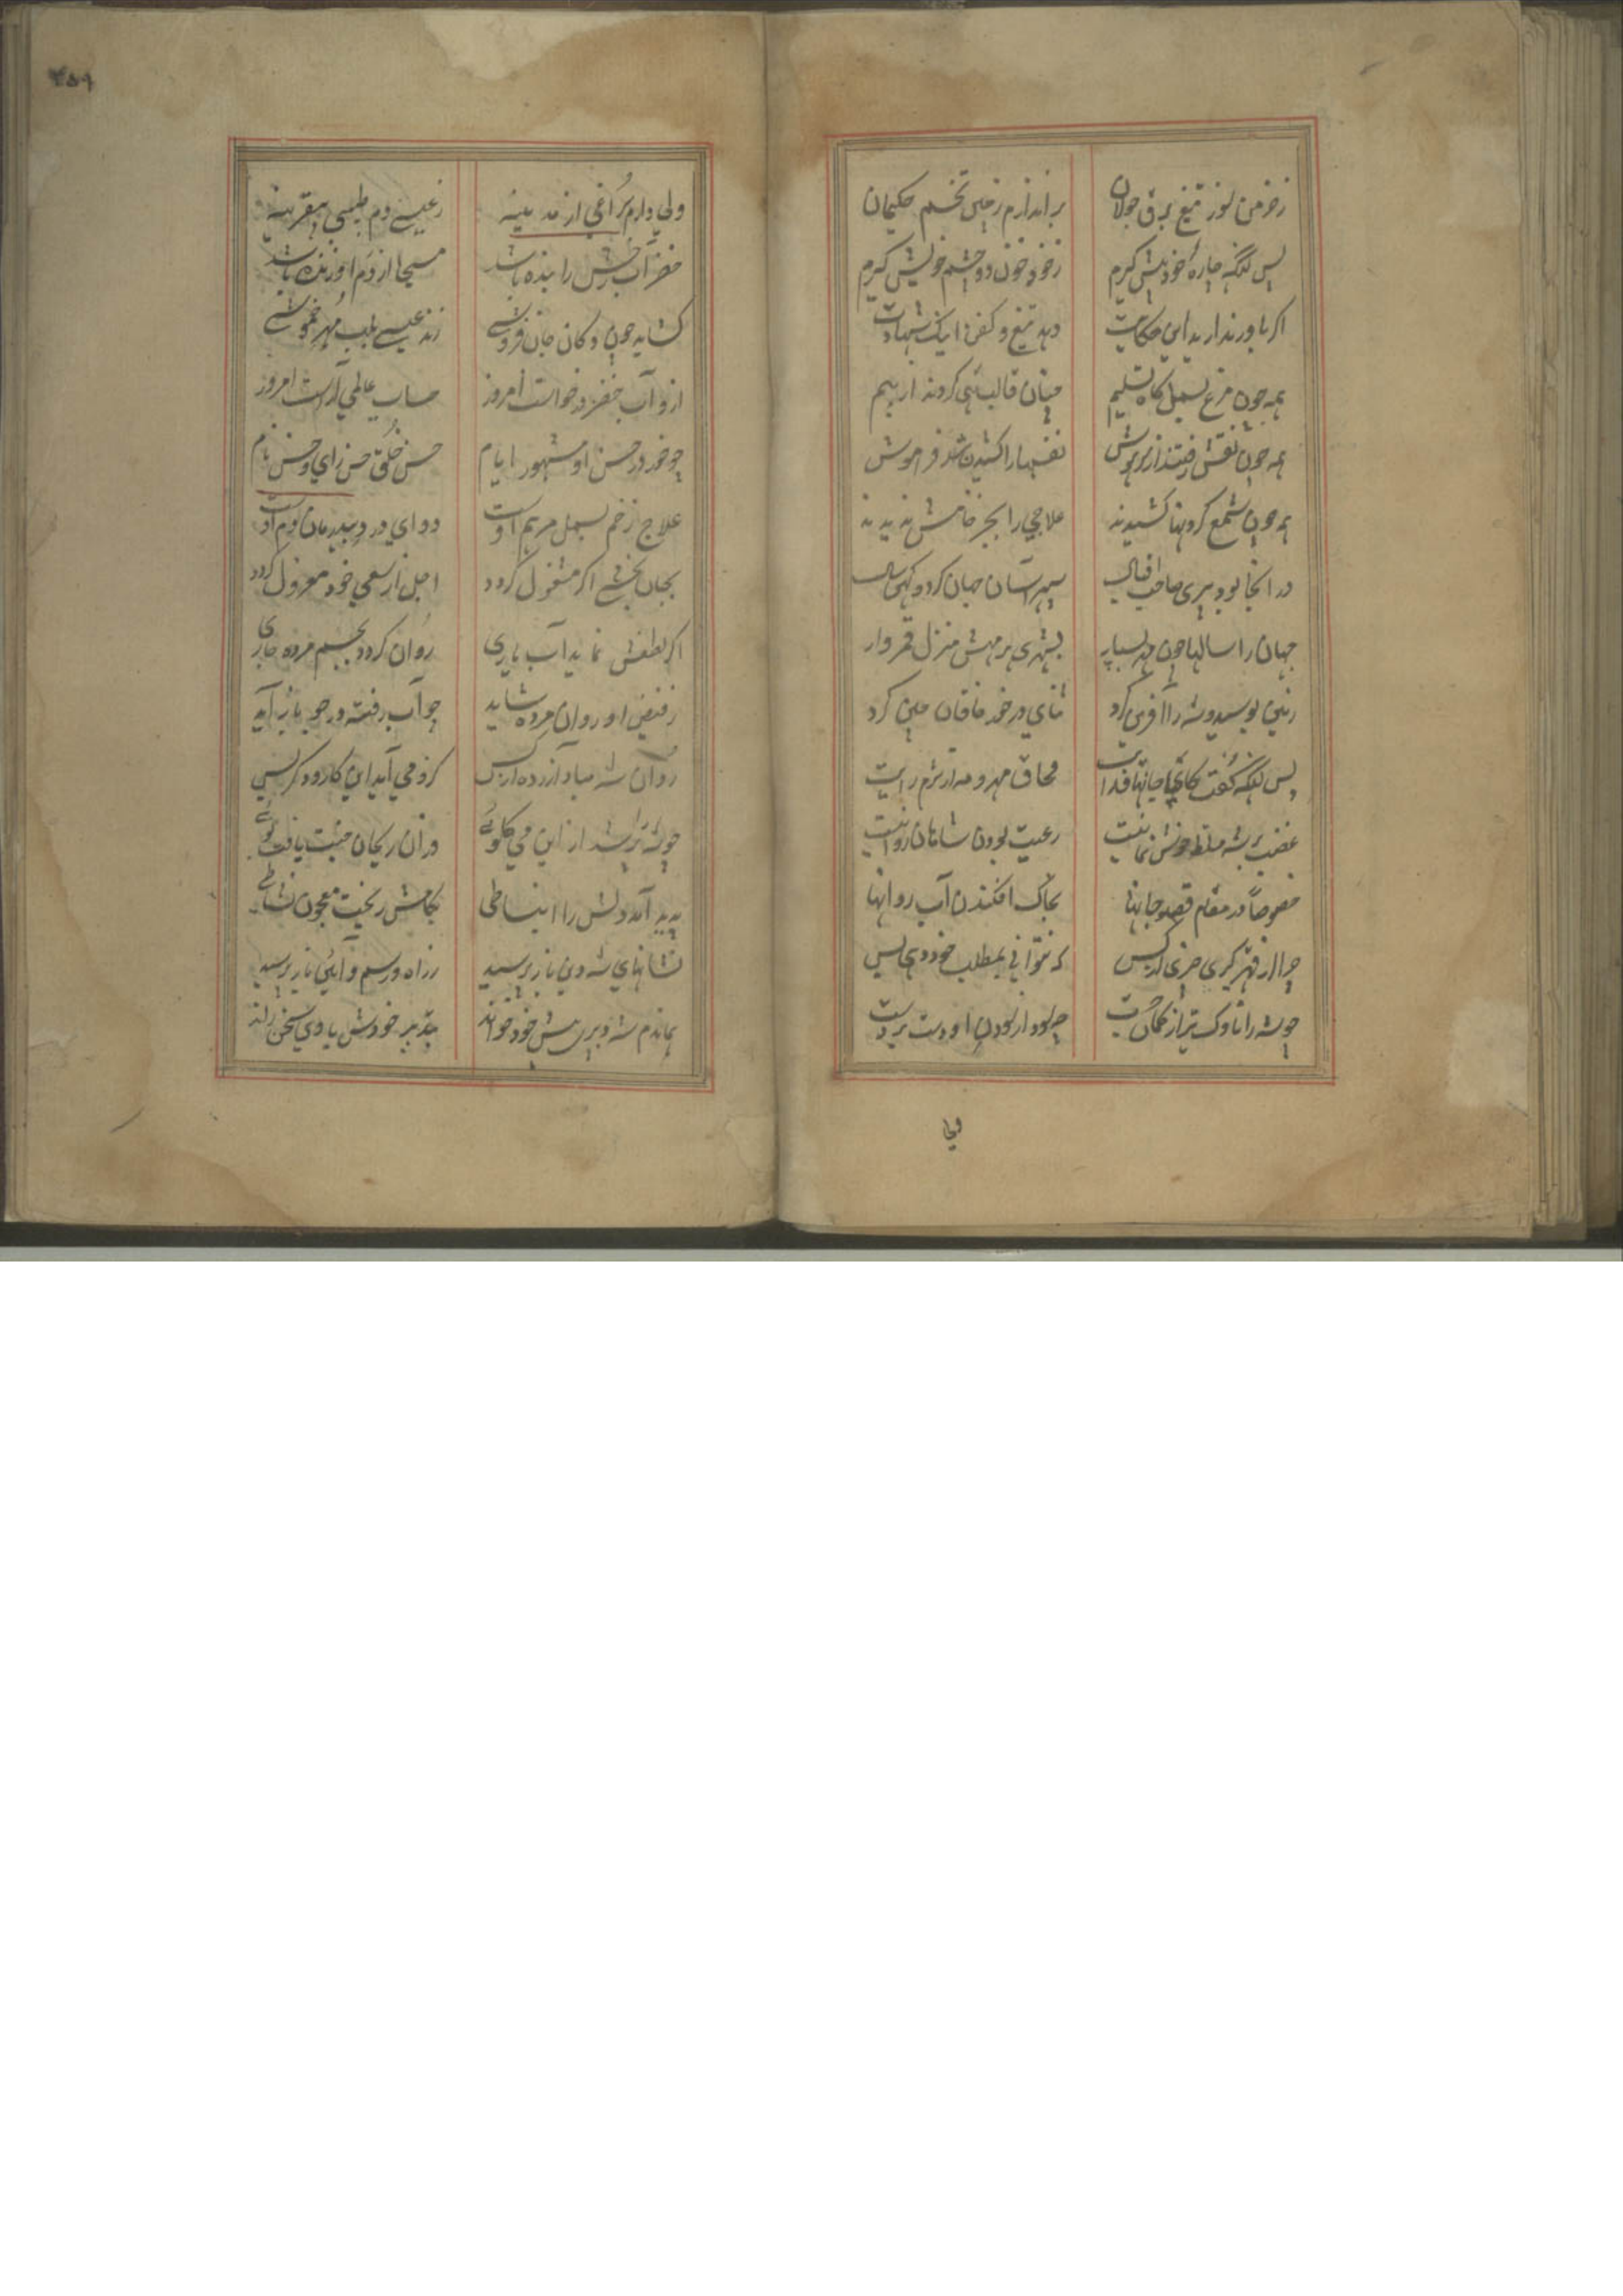 زخرمن سوز تیغ برق جولان براندازم زچین تخم حکیمان
پس آنگه چاره خود پیش گیرم زخود خون دو چشم خویش گیرم
اگر باور ندارید این حکایت دهد تیغ و کفن اینک شهادت
همه چون مرغ بسمل گاه تسلیم میان قالب تهی کردند از بیم
همه چون نقش رفتند از سر هوش نفسها را کشیدن شد فراموش
همه چون شمع گردنها کشیدند علاجی را بجز خامش ندیدند
در انجا بود پیری صاحب اقبال سپهر آسان جهان گرد و کهن سال
جهان را سالها چون مه سیار بشهری هر مهش منزل قمروار
زمین بوسید و شه را آفرین کرد ثنای در خور خاقان چین کرد
پس آنگه گفت کای جانها فدایت محاق مهر و مه از بزم رایت
غضب بر شه مسلط خوش نما نیست رعیت بودن شاهان روا نیست
خصوصاً در مقام قصد جانها بخاک افکندن آب روانها
چرا از قهر گیری خرمی از کس که نتوانی بمطلب خود دهی پس
چو شه را ناوک تیر از کمان جست چه سود از سودن او دست بر دست
ولی
۲۵۹
ولی دارم سراغی از مدینه زعیسی دم طبیبی بیقرینه
خضر آب رخش را بنده باشد مسیحا از دم او زنده باشد
گشاید چون دکان جان فروشی زند عیسی بلب مهر خموشی
ازو آب خضر در خواست امروز حساب عالمی راست امروز
چو خور در حسن او مشهور ایام حسن خلق حسن رای و حسن نام
علاج زخم بسمل مرهم اوست دوای درد بیدرمان دم اوست
بجان بخشی اگر مشغول گردد اجل از سعی خود معزول گردد
اگر لطفش نماید آب یاری روان گردد بجسم مرده جاری
زفیض او روان مرده شاید چو آب رفته در جو باز آید
روان شه مباد آزرده از کس کزو می آید این کار و دگر بس
چو شه بشنید از این می گوئی در آن ریحان جنت یافت بوئی
پدید آمد دلش را انبساطی بکامش ریخت معجون نشاطی
نشانهای شه دین باز پرسید زراه و رسم و آئین باز پرسید
هماندم شه وزیری پیش خود خواند بتدبیر خودش با وی سخن راند